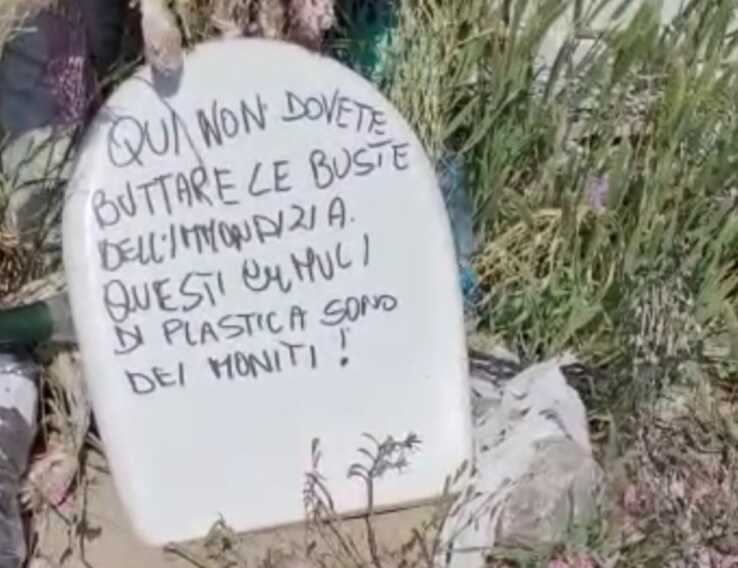 QUI NON DOVETE
BUTTARE LE BUSTE
DELL'IMMONDIZIA.
QUESTI CUMULI
DI PLASTICA SONO
DEI MONITI!